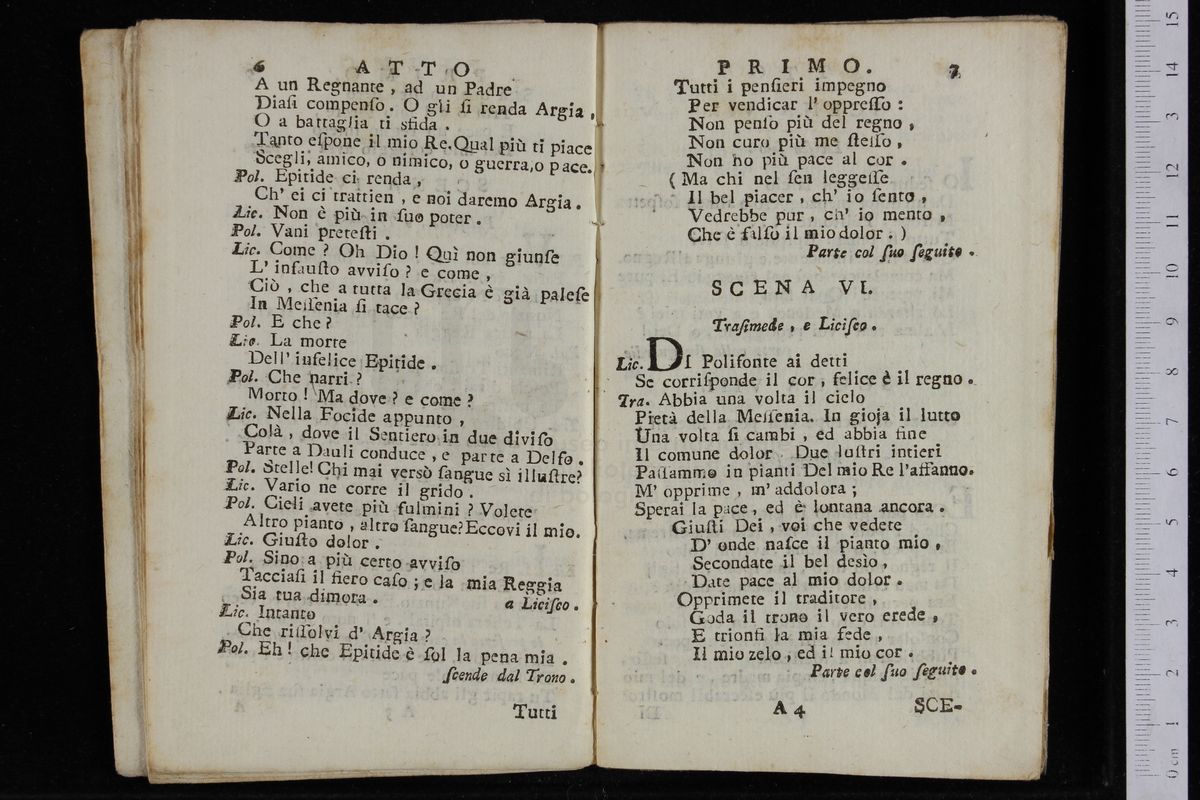 6 ATTO
A un Regnante, ad un Padre
Diaſi compenſo. O gli ſi renda Argia,
O a battaglia ti sfida.
Tanto eſpone il mio Re. Qual più ti piace
Scegli, amico, o nimico, o guerra, o pace.
Pol. Epitide ci renda,
Ch' ei ci trattien, e noi daremo Argia.
Lic. Non è più in ſuo poter.
Pol. Vani preteſti.
Lic. Come? Oh Dio! Quì non giunſe
L' infauſto avviſo? e come,
Ciò, che a tutta la Grecia è già paleſe
In Meſſenia ſi tace?
Pol. E che?
Lic. La morte
Dell' infelice Epitide.
Pol. Che narri?
Morto! Ma dove? e come?
Lic. Nella Focide appunto,
Colà, dove il Sentiero in due diviſo
Parte a Dauli conduce, e parte a Delfo.
Pol. Stelle! Chi mai versò ſangue sì illuſtre?
Lic. Vario ne corre il grido.
Pol. Cieli avete più fulmini? Volete
Altro pianto, altro ſangue? Eccovi il mio.
Lic. Giuſto dolor.
Pol. Sino a più certo avviſo
Tacciaſi il fiero caſo; e la mia Reggia
Sia tua dimora. a Liciſco.
Lic. Intanto
Che riſſolvi d' Argia?
Pol. Eh! che Epitide è ſol la pena mia.
ſcende dal Trono.
Tutti
PRIMO. 7
Tutti i penſieri impegno
Per vendicar l' oppreſſo:
Non penſo più del regno,
Non curo più me ſteſſo,
Non ho più pace al cor.
(Ma chi nel ſen leggeſſe
Il bel piacer, ch' io ſento,
Vedrebbe pur, ch' io mento,
Che è falſo il mio dolor.)
Parte col ſuo ſeguito.
SCENA VI.
Traſimede, e Liciſco.
Lic. DI Polifonte ai detti
Se corriſponde il cor, felice è il regno.
Tra. Abbia una volta il cielo
Pietà della Meſſenia. In gioja il lutto
Una volta ſi cambi, ed abbia fine
Il comune dolor. Due luſtri intieri
Paſſammo in pianti Del mio Re l'affanno.
M' opprime, m' addolora;
Sperai la pace, ed è lontana ancora.
Giuſti Dei, voi che vedete
D' onde naſce il pianto mio,
Secondate il bel desio,
Date pace al mio dolor.
Opprimete il traditore,
Goda il trono il vero erede,
E trionfi la mia fede,
Il mio zelo, ed il mio cor.
Parte col ſuo ſeguito.
A 4 SCE-
0cm 1 2 3 4 5 6 7 8 9 10 11 12 3 14 15